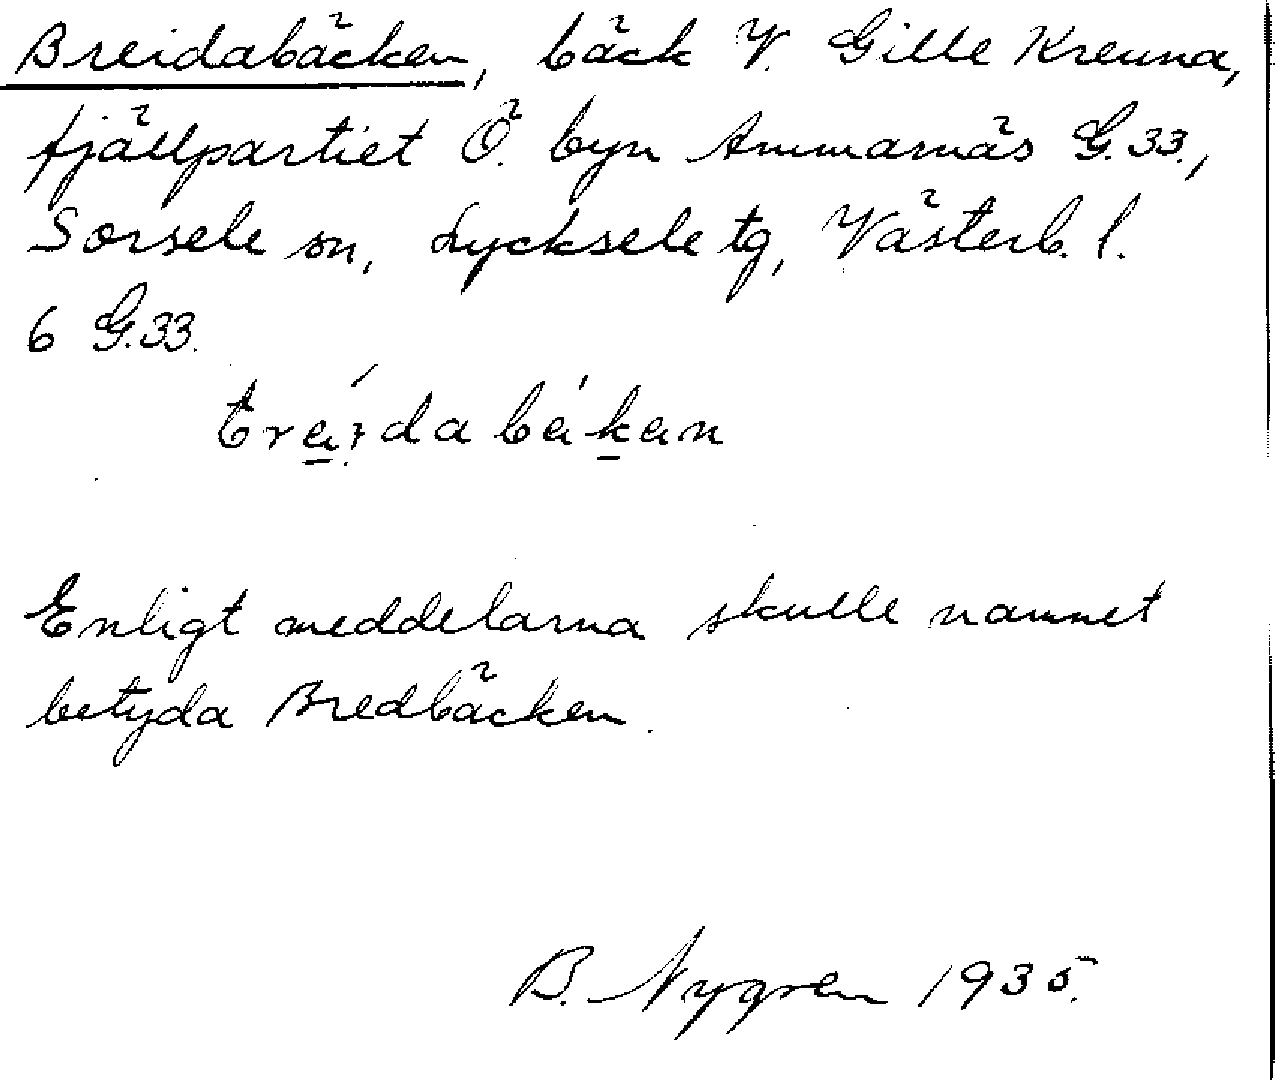 Breidabäcken, bäck V. Gille Kreuna,
fjällpartiet Ö. byn Ammarnäs G.33.,
Sorsele sn, Lycksele tg, Västerb. l.
6 G.33.
Enligt meddelarna skulle namnet
betyda Bredbäcken.
B. Nygren 1935.